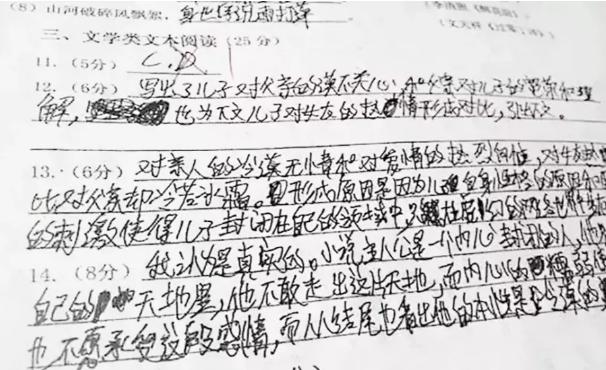 (8) 山河破碎风飘絮,身世浮沉雨打萍
三、文学类文本阅读(25分)
11. (5分) C.D
12. (6分) 写出了儿子对父亲的漠不关心,和父亲对儿子的
解,也为下文儿子对女友的热情形成对比,引出下文。
13. (6分) 对亲人的冷漠无情和对爱情的热烈向往,对女友热
比对父亲却冷若冰霜。形成原因是因为儿子自身性格的原因和
的刺激使得儿子封闭在自己的领域中
14. (8分) 我认为是真实的。小说主人公是一个内心封闭的人,他
自己的天地里,他不敢走出这片天地,而内心的
也不愿承受这段感情,而从结尾也看出他的本性是